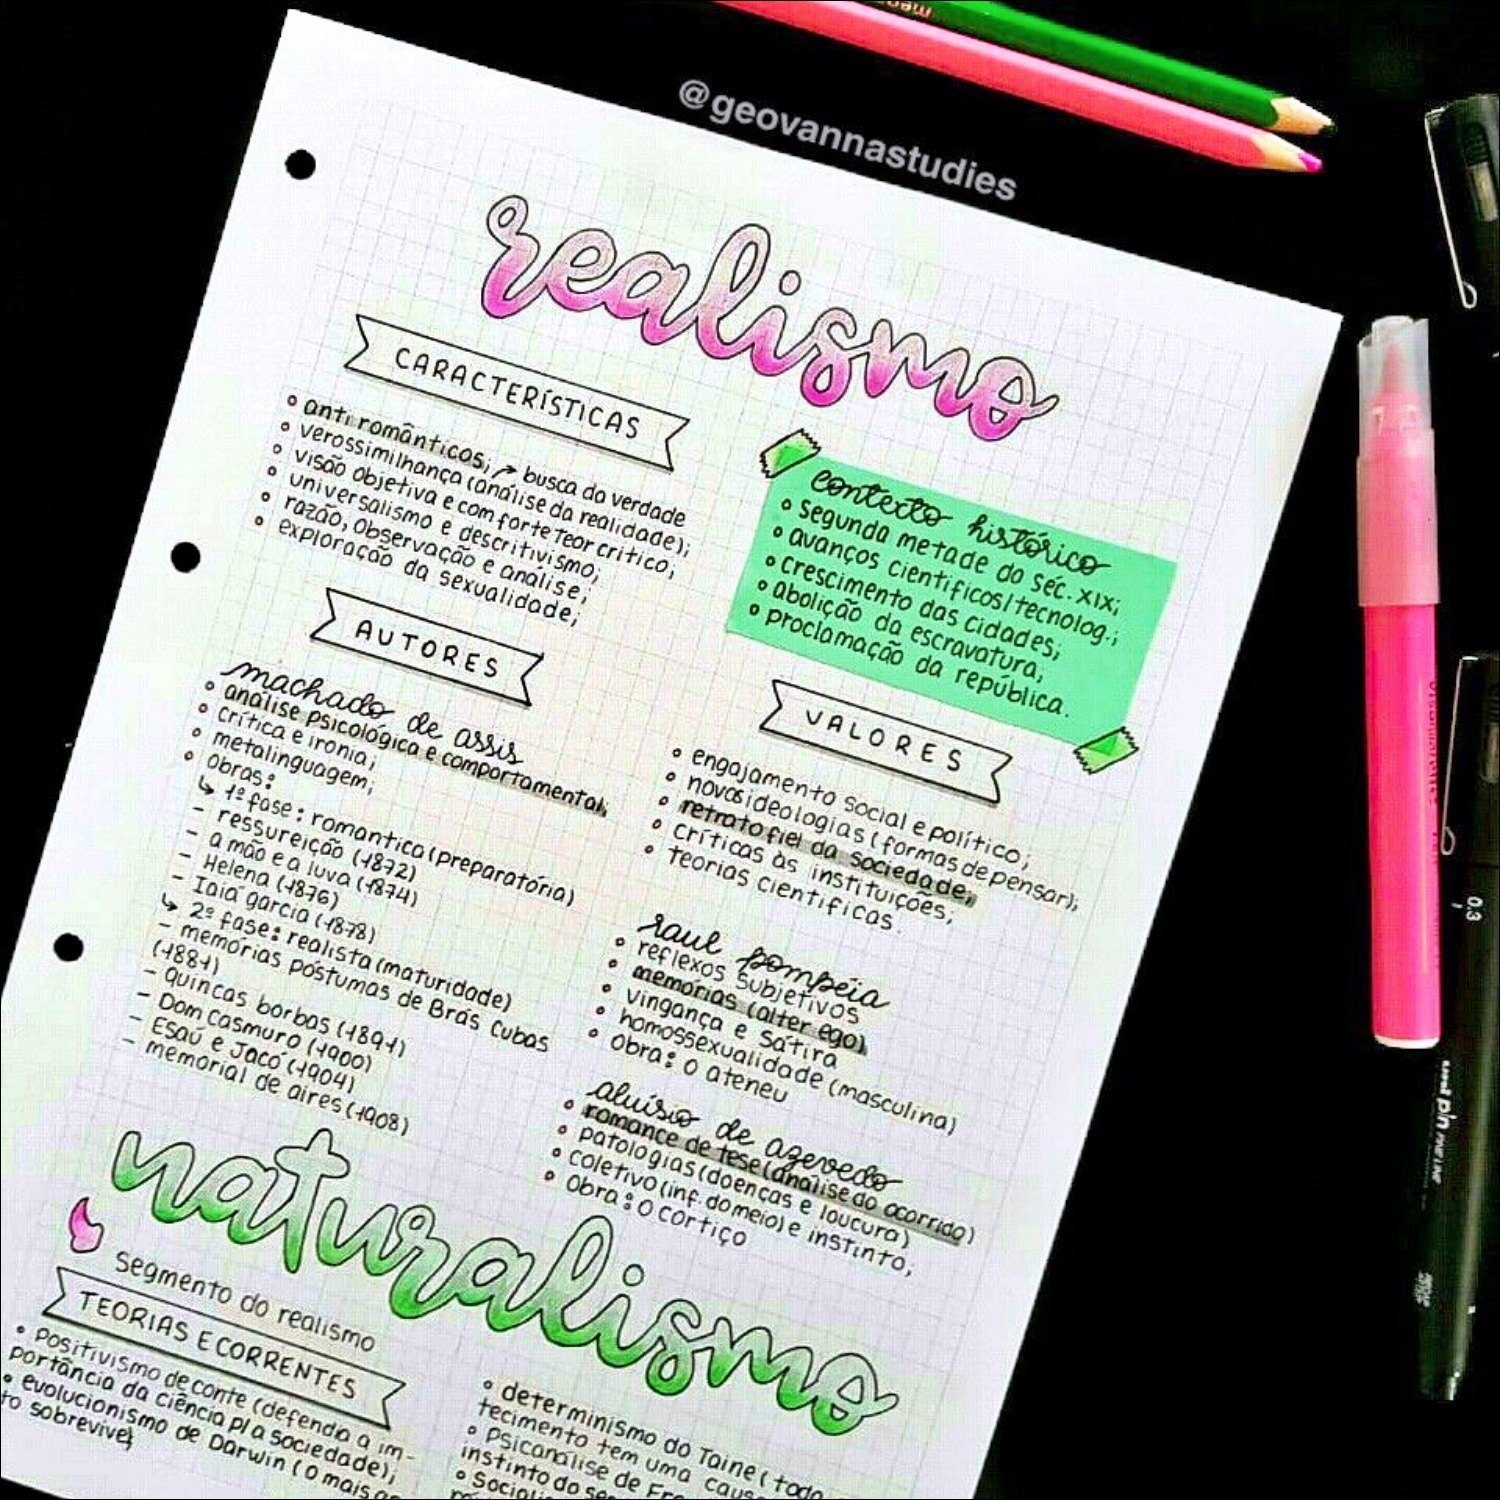 @geovannastudies
realismo
CARACTERÍSTICAS
• anti românticos; → busca da verdade
• verossimilhança (análise da realidade);
• visão objetiva e com forte teor crítico;
• universalismo e descritivismo;
• razão, observação e analise;
• exploração da sexualidade;
contexto histórico
• segunda metade do séc. XIX;
• avanços científicos/tecnolog.;
• crescimento das cidades;
• abolição da escravatura;
• proclamação da república.
AUTORES
machado de assis
• análise psicológica e comportamental;
• crítica e ironia;
• metalinguagem;
• obras:
↳ 1ª fase: romantica (preparatória)
- ressureição (1872)
- a mão e a luva (1874)
- Helena (1876)
- Iaiá garcia (1878)
↳ 2ª fase: realista (maturidade)
- memórias póstumas de Brás Cubas
(1881)
- Quincas borbas (1891)
- Dom casmuro (1900)
- Esaú e Jacó (1904)
- memorial de aires (1908)
VALORES
• engajamento social e político;
• novas ideologias (formas de pensar);
• retrato fiel da sociedade;
• críticas às instituições;
• teorias científicas.
raul pompéia
• reflexos subjetivos
• memórias (alter ego)
• vingança e sátira
• homossexualidade (masculina)
• obra: o ateneu
aluísio de azevedo
• romance de tese (análise do ocorrido)
• patologias (doenças e loucura)
• coletivo (inf. do meio) e instinto;
• obra: o cortiço
naturalismo
segmento do realismo
TEORIAS E CORRENTES
• positivismo de conte (defendia a im-
portância da ciência p/ a sociedade);
• evolucionismo de Darwin (o mais
to sobrevive)
• determinismo do Taine (todo
tecimento tem uma caus
• psicanálise de Fre
instinto do se
• sociali
0.3
uni pin
FINE LINE